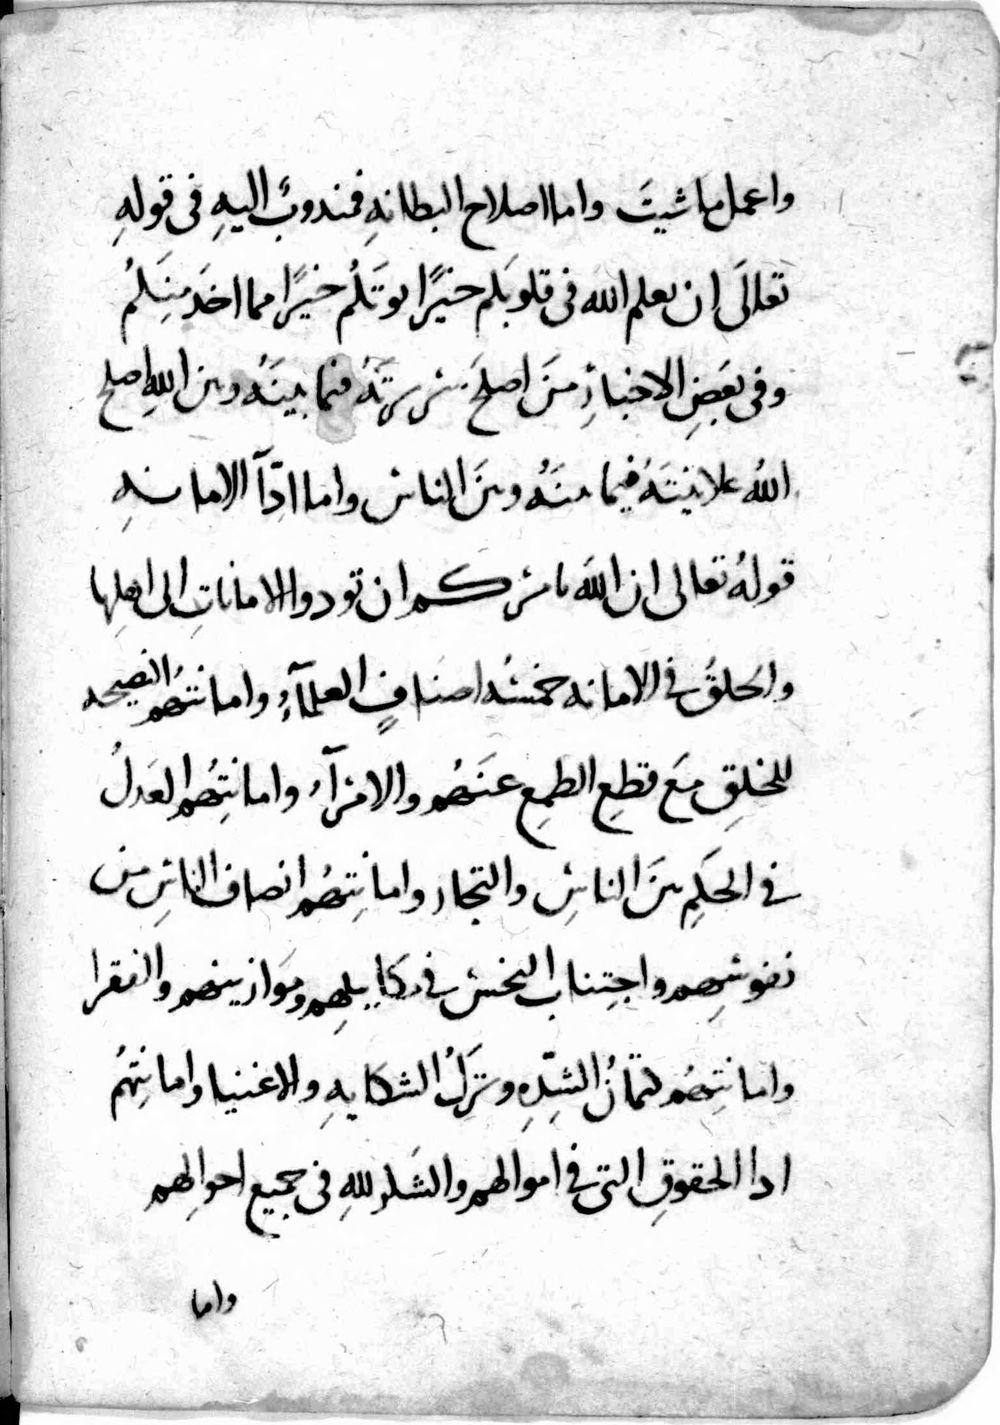 واعمل ما شيتَ واما اصلاح البطانهِ فمندوبٌ اليهِ فى قولهِ
تعالَى إن يعلم الله فى قلوبَكم خيرًا يوتَكُم خيرًا مما اخذَ منِكُم
وفى بعَضِ الاخبارِ مَن اصلحَ سريرتَهُ فيما بينَهُ وبين اللهِ اصلح
اللهُ علانيتَهُ فيما بينَهُ وبينَ الناسِ واما ادّآ الامانهِ
قولهُ تعالى ان اللهَ يامركم ان تودوا الاماناتِ الى اهلِها
والخلقُ فى الامانه خمسهُ اصنافٍ العلمآءُ وامانتهُم النصيحه
للخلِقِ مَعَ قطعِ الطمعِ عنَهُم والامرآءُ وامانتِهُم العَدلُ
فى الحكَمِ بينَ الناسِ والتجار وامانِتهُم انصاف الناسِ من
نفوسِهم واجتِناب البخس فى مكاييلِهم ومَوازينهم والفقرا
وامانتِهُم كتمانُ الشِدّهِ وتَركُ الشكايهِ والاغنيا وامانتِهُم
ادا الحقوقِ التى فى اموالهم والشكر للهِ فى جميع احوالِهم
واما